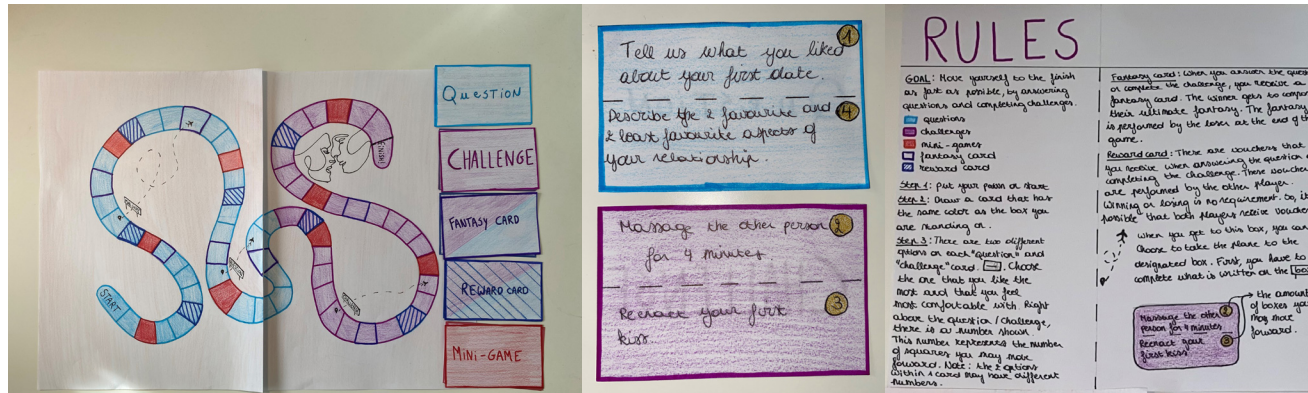 START
FINISH
QUESTION
CHALLENGE
FANTASY CARD
REWARD CARD
MINI-GAME
1
Tell us what you liked
about your first date.
4
Describe the 2 favourite and
2 least favourite aspects of
your relationship.
2
Massage the other person
for 4 minutes.
3
Reenact your first
kiss
RULES
GOAL: Move yourself to the finish
as fast as possible, by answering
questions and completing challenges.
questions
challenges
mini-games
fantasy card
reward card
Step 1: Put your pawn on start
Step 2: Draw a card that has
the same color as the box you
are standing on.
Step 3: There are two different
options on each "question" and
"challenge" card. Choose
the one that you like the
most and that you feel
most comfortable with. Right
above the question/challenge,
there is a number shown.
This number represents the number
of squares you may move
forward. Note: the 2 options
within 1 card may have different
numbers.
Fantasy card: When you answer the
or complete the challenge, you receive a
fantasy card. The winner gets to
their ultimate fantasy. The fantasy
is performed by the loser at the end of
game.
Reward card: There are vouchers that
you receive when answering the question
completing the challenge. These
are performed by the other player.
Winning or losing is no requirement. So,
possible that both players receive
When you get to this box, you can
choose to take the plane to the
designated box. First, you have to
complete what is written on the
the amount
of boxes
may move
forward.
Massage the other 2
person for 4 minutes
Reenact your 3
first kiss